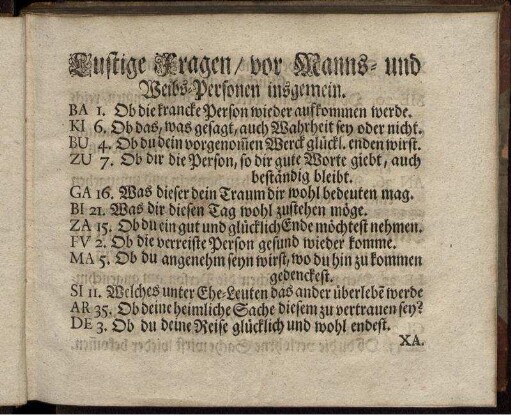 Lustige Fragen / vor Manns- und
Weibs-Personen insgemein.
BA 1. Ob die krancke Person wieder aufkommen werde.
KI 6. Ob das, was gesagt, auch Wahrheit sey oder nicht.
BU 4. Ob du dein vorgenom̄en Werck glückl. enden wirst.
ZU 7. Ob dir die Person, so dir gute Worte giebt, auch
beständig bleibt.
GA 16. Was dieser dein Traum dir wohl bedeuten mag.
BI 21. Was dir diesen Tag wohl zustehen möge.
ZA 15. Ob du ein gut und glücklich Ende möchtest nehmen.
FV 2. Ob die verreiste Person gesund wieder komme.
MA 5. Ob du angenehm seyn wirst, wo du hin zu kommen
gedenckest.
SI 11. Welches unter Ehe-Leuten das ander überlebē werde
AR 35. Ob deine heimliche Sache diesem zu vertrauen sey?
DE 3. Ob du deine Reise glücklich und wohl endest.
XA.